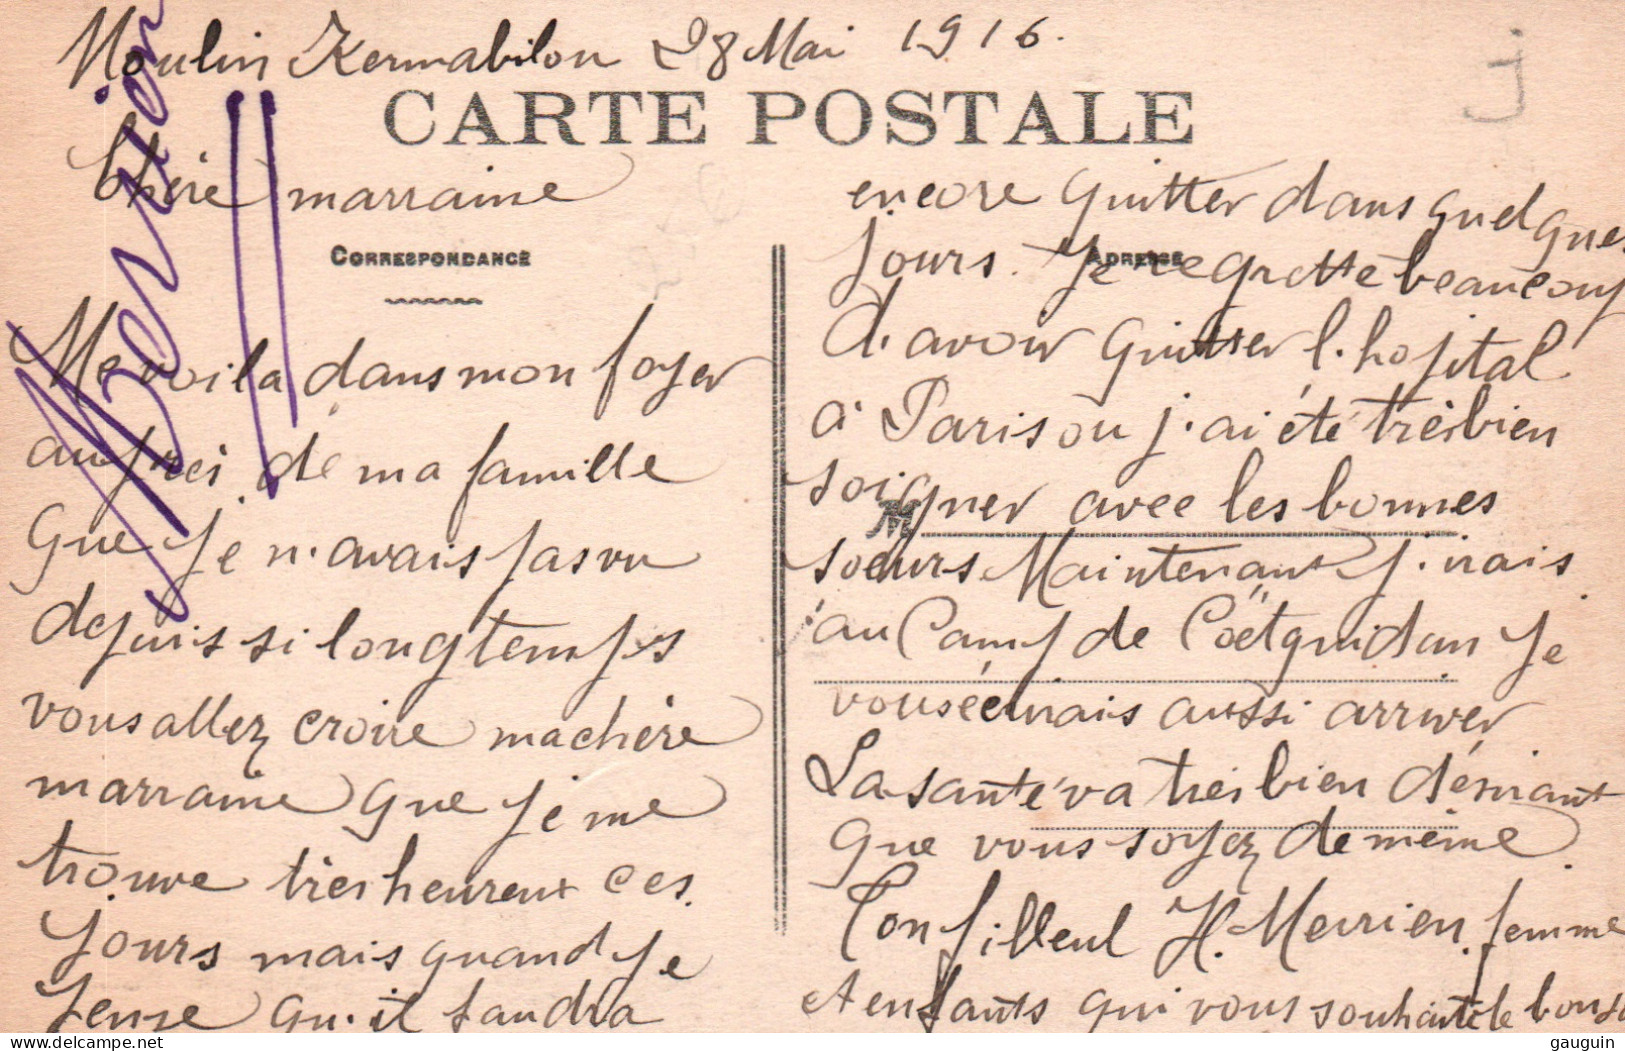 Moulin Kermabilon 28 Mai 1916.
CARTE POSTALE
Chère marraine
CORRESPONDANCE
Me voila dans mon foyer
aupres de ma famille
que je n'avais pas vu
depuis si longtemps
vous allez croire machère
marraine que je me
trouve tres heureux ces
jours mais quand je
pense qu'il faudra
encore quitter dans quelques
ADRESSE
jours. Je regrette beaucoup
d'avoir quitter l'hopital
a Paris ou j'ai été trèsbien
soigner avec les bonnes
soeurs Maintenant j'irais
au Camp de Coëtquidan je
vous écrirais aussi arriver
La santé va tres bien désirant
que vous soyez de même.
Ton filleul H. Merrien femme
et enfants qui vous souhaite le bonjo
Merrien
j
gauguin